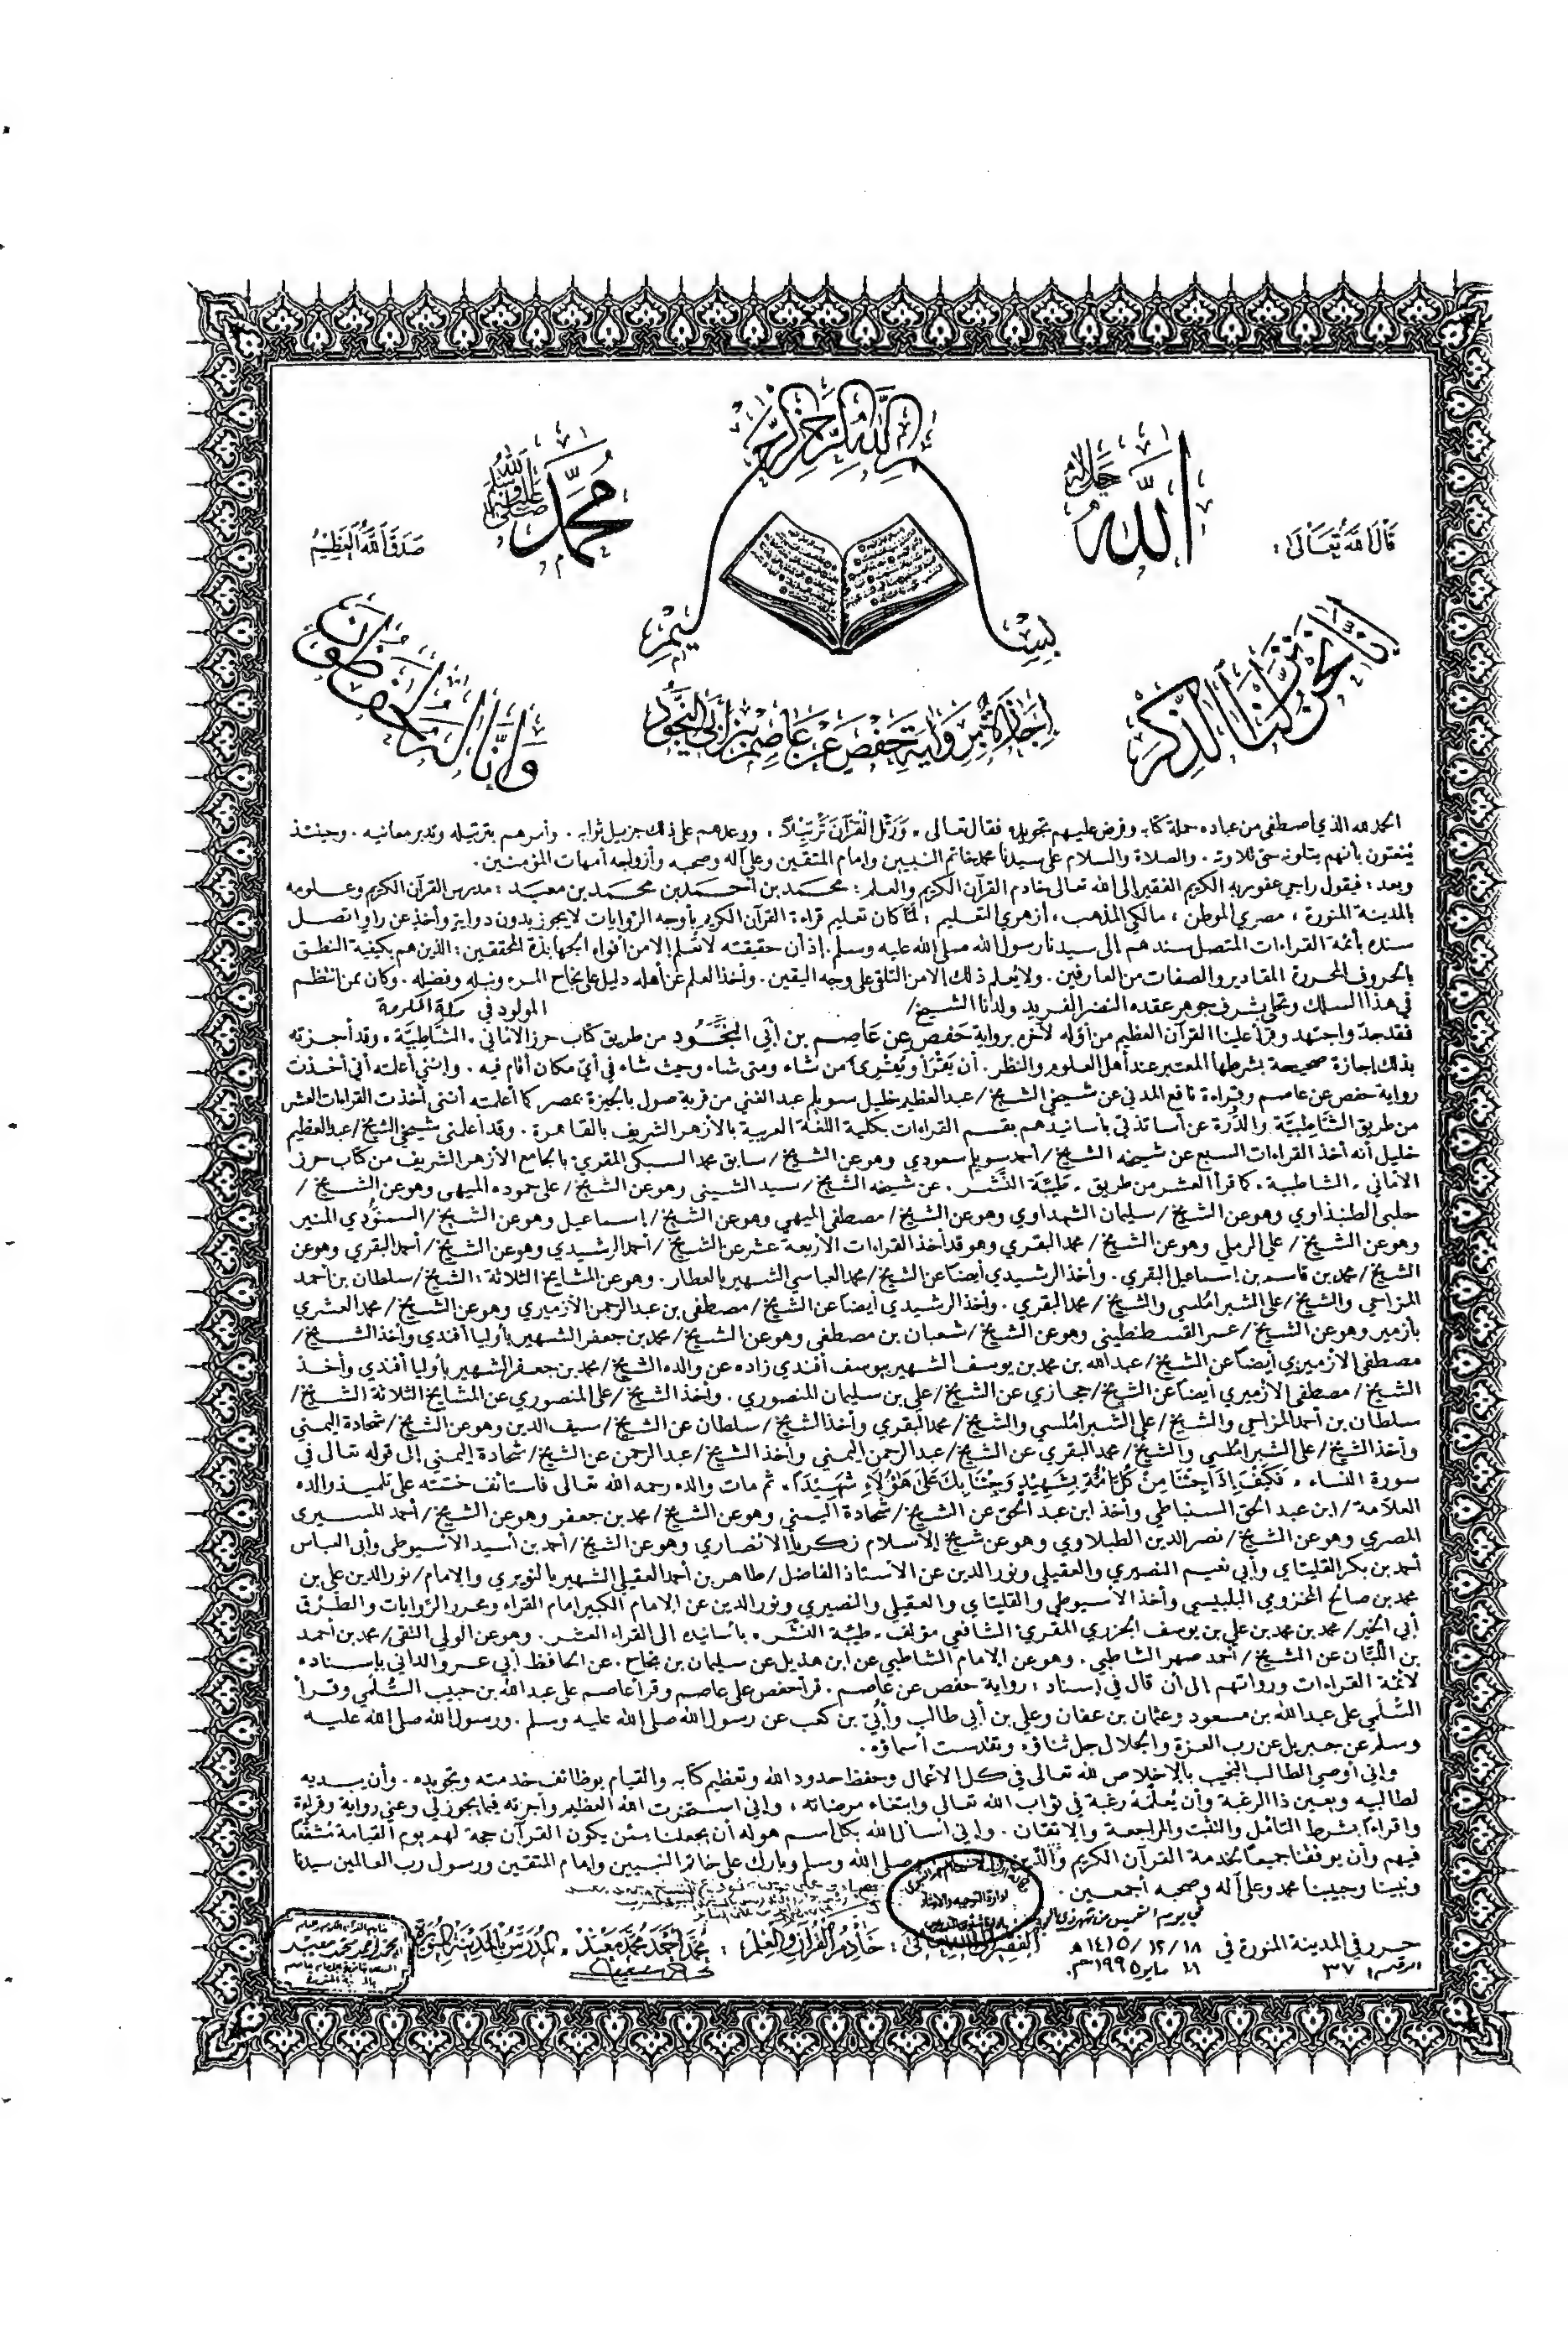 بسم الله الرحمن الرحيم
الله جل جلاله
محمد صلى الله عليه وسلم
قَالَ اللهُ تَعَالَىٰ :
صَدَقَ اللهُ الْعَظِيمُ
إنا نحن نزلنا الذكر
وإنا له لحافظون
إجازة برواية حفص عن عاصم بن أبي النجود
الحمد لله الذي اصطفى من عباده حملة كتابه وفرض عليهم تجويده فقال تعالى « وَرَتِّلِ الْقُرْآنَ تَرْتِيْلاً » ووعدهم على ذلك جزيل ثوابه . وأمرهم بترتيله وتدبر معانيه . وحينئذ
يُنعتون بأنهم يتلونه حق تلاوته . والصلاة والسلام على سيدنا محمد خاتم النبيين وإمام المتقين وعلى آله وصحبه وأزواجه أمهات المؤمنين .
وبعد : فيقول راجي عفو ربه الكريم الفقير إلى الله تعالى خادم القرآن الكريم والعلم : محمد بن أحمد بن محمد بن معبد : مدرس القرآن الكريم وعلومه
بالمدينة المنورة ، مصري الموطن ، مالكي المذهب ، أزهري التعليم : لمّا كان تعليم قراءة القرآن الكريم بأوجه الروايات لا يجوز بدون دراية وأخذ عن راوٍ اتصل
سنده بأئمة القراءات المتصل سندهم إلى سيدنا رسول الله صلى الله عليه وسلم . إذ أن حقيقته لا تُعلم إلا من أفواه الجهابذة المحققين : الذين هم بكيفية النطق
بالحروف المحررة المقادير والصفات من العارفين . ولا يُعلم ذلك إلا من التلقي على وجه اليقين . وأخذ العلم عن أهله دليل على نجاح المرء ونبله وفضله . وكان ممن انتظم
في هذا السلك وتحلى بشرف جوهر عقده النضر الفريد ولدنا الشيخ / المولود في مكة المكرمة
فقد جدّ واجتهد وقرأ علينا القرآن العظيم من أوله لآخره برواية حَفص عن عَاصِم بن أبي النجُّود من طريق كتاب حرز الأماني « الشَّاطِبِيَّة » وقد أجزته
بذلك إجازة صحيحة بشرطها المعتبر عند أهل العلوم والنظر . أن يَقْرَأَ ويُقْرِىءَ من شاء ومتى شاء وحيث شاء في أيّ مكان أقام فيه . وإنني أعلمته أني أخذت
رواية حفص عن عاصم وقراءة نافع المدني عن شيخي الشيخ / عبد العظيم خليل سويلم عبد الغني من قرية صول بالجيزة بمصر كما أعلمته أنني أخذت القراءات العشر
من طريق الشَّاطِبيَّة والدُّرة عن أساتذتي بأسانيدهم بقسم القراءات بكلية اللغة العربية بالأزهر الشريف بالقاهرة . وقد أعلمني شيخي الشيخ / عبد العظيم
خليل أنه أخذ القراءات السبع عن شيخه الشيخ / أحمد سويلم سعودي وهو عن الشيخ / سابق محمد السبكي المقرىء بالجامع الأزهر الشريف من كتاب حرز
الأماني « الشاطبية » كما قرأ العشر من طريق « طَيِّبَة النَّشْر » عن شيخه الشيخ / سيد الشيني وهو عن الشيخ / علي حموده الميهي وهو عن الشيخ /
حلبي الطبنذاوي وهو عن الشيخ / سليمان الشهداوي وهو عن الشيخ / مصطفى الميهي وهو عن الشيخ / إسماعيل وهو عن الشيخ / السمنودي المنير
وهو عن الشيخ / علي الرميلي وهو عن الشيخ / محمد البقري وهو قد أخذ القراءات الأربعة عشر عن الشيخ / أحمد الرشيدي وهو عن الشيخ / أحمد البقري وهو عن
الشيخ / محمد بن قاسم بن إسماعيل البقري . وأخذ الرشيدي أيضاً عن الشيخ / محمد العباسي الشهير بالعطار . وهو عن المشايخ الثلاثة : الشيخ / سلطان بن أحمد
المزاحي والشيخ / علي الشبراملسي والشيخ / محمد البقري . وأخذ الرشيدي أيضاً عن الشيخ / مصطفى بن عبد الرحمن الأزميري وهو عن الشيخ / محمد العشري
بأزمير وهو عن الشيخ / عمر القسطنطيني وهو عن الشيخ / شعبان بن مصطفى وهو عن الشيخ / محمد بن جعفر الشهير بأوليا أفندي وأخذ الشيخ /
مصطفى الأزميري أيضاً عن الشيخ / عبد الله بن محمد بن يوسف الشهير بيوسف أفندي زاده عن والده الشيخ / محمد بن جعفر الشهير بأوليا أفندي وأخذ
الشيخ / مصطفى الأزميري أيضاً عن الشيخ / حجازي عن الشيخ / علي بن سليمان المنصوري . وأخذ الشيخ / علي المنصوري عن المشايخ الثلاثة الشيخ /
سلطان بن أحمد المزاحي والشيخ / علي الشبراملسي والشيخ / محمد البقري وأخذ الشيخ / سلطان عن الشيخ / سيف الدين وهو عن الشيخ / شحادة اليمني
وأخذ الشيخ / علي الشبراملسي والشيخ / محمد البقري عن الشيخ / عبد الرحمن اليمني وأخذ الشيخ / عبد الرحمن عن الشيخ / شحادة اليمني إلى قوله تعالى في
سورة النساء « فَكَيْفَ إِذَا جِئْنَا مِنْ كُلِّ أُمَّةٍ بِشَهِيْدٍ وَجِئْنَا بِكَ عَلَىٰ هَؤُلَاءِ شَهِيْدَاً » ثم مات والده رحمه الله تعالى فاستأنف ختمته على تلميذ والده
العلامة / ابن عبد الحق السنباطي وأخذ ابن عبد الحق عن الشيخ / شحادة اليمني وهو عن الشيخ / محمد بن جعفر وهو عن الشيخ / أحمد المسيري
المصري وهو عن الشيخ / نصر الدين الطبلاوي وهو عن شيخ الإسلام زكريا الأنصاري وهو عن الشيخ / أحمد بن أسيد الأسيوطي وأبي العباس
أحمد بن بكر القليتاي وأبي نعيم النصيري والعقيلي ونور الدين عن الأستاذ الفاضل / طاهر بن أحمد العقيلي الشهير بالنويري والإمام / نور الدين علي بن
محمد بن صالح المخزومي البلبيسي وأخذ الأسيوطي والقليتاي والعقيلي والنصيري ونور الدين عن الإمام الكبير إمام القراء ومحرر الروايات والطرق
أبي الخير / محمد بن محمد بن علي بن يوسف الجزري المقرىء الشافعي مؤلف « طيّبة النشر » بأسانيده إلى القراء العشر . وهو عن الولي التقي / محمد بن أحمد
بن اللَّبَّان عن الشيخ / أحمد صهر الشاطبي . وهو عن الإمام الشاطبي عن ابن هذيل عن سليمان بن نجاح . عن الحافظ أبي عمرو الداني بإسناده
لأئمة القراءات ورواتهم إلى أن قال في إسناد : رواية حفص عن عاصم . قرأ حفص على عاصم وقرأ عاصم على عبد الله بن حبيب السُّلمي وقرأ
السُّلَمي على عبد الله بن مسعود وعثمان بن عفان وعلي بن أبي طالب وأُبيّ بن كعب عن رسول الله صلى الله عليه وسلم . ورسول الله صلى الله عليه
وسلم عن جبريل عن رب العزة والجلال جل ثناؤه وتقدست أسماؤه .
وإني أوصي الطالب النجيب بالإخلاص لله تعالى في كل الأعمال وحفظ حدود الله وتعظيم كتابه والقيام بوظائف خدمته وتجويده . وأن يبديه
لطالبيه وبعين ذا الرغبة وأن يُعلّمه رغبة في ثواب الله تعالى وابتغاء مرضاته ، وإني استخرت الله العظيم وأجزته فيما يجوز لي وعني رواية وقراءة
وإقراءً بشرط التأمل والتثبت والمراجعة والإتقان . وإني أسأل الله بكل اسم هو له أن يجعلنا ممن يكون القرآن حجة لهم يوم القيامة مُشفّعاً
فيهم وأن يوفقنا جميعاً لخدمة القرآن الكريم صلى الله وسلم وبارك على خاتم النبيين وإمام المتقين ورسول رب العالمين سيدنا
ونبينا وحبيبنا محمد وعلى آله وصحبه أجمعين .
في يوم الخميس من شهر ذي
حرر في المدينة المنورة في ١٨ / ١٢ / ١٤١٥ هـ
الفقير إلى : خَادِمُ القُرْآنِ وَالعِلْمِ : مُحَمَّد أَحْمَد مُحَمَّد مَعْبَد ، المُدَرِّسُ بِالمَدِينَةِ المُنَوَّرَة
الرقم / ٣٧
مايو ١٩٩٥ م
محمد أحمد محمد معبد